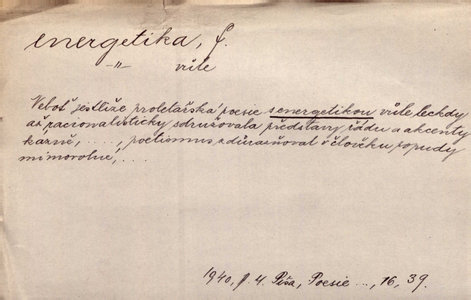 energetika, f.
-"- vůle
Neboť jestliže proletářská poesie s energetikou vůle leckdy
až racionalisticky sdružovala představy řádu a akcenty
kázně, . . . ., poetismus zdůrazňoval v člověku popudy
mimovolné, . . . .
1940, f. 4. Píša, Poesie . . ., 16, 39.